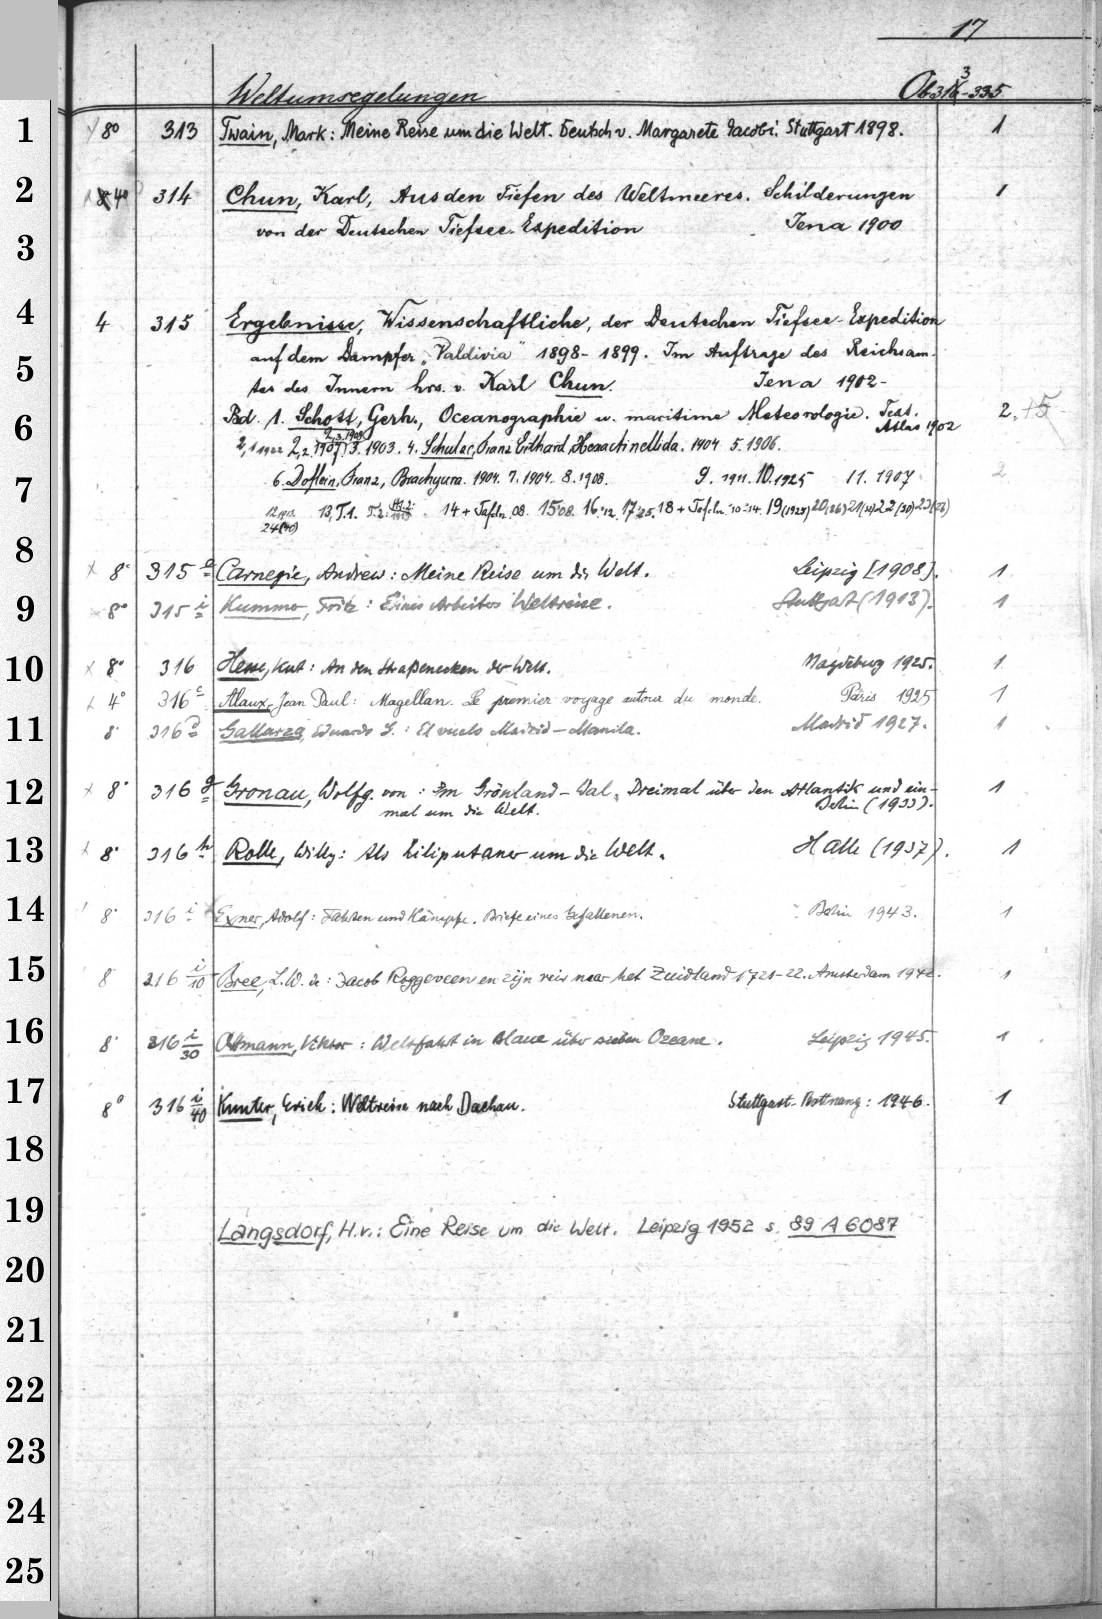 17
Weltumsegelungen Ob 313-335
1 8° 313 Twain, Mark: Meine Reise um die Welt. Deutsch v. Margarete Jacobi. Stuttgart 1898. 1
2 4° 314 Chun, Karl, Aus den Tiefen des Weltmeeres. Schilderungen 1
von der Deutschen Tiefsee-Expedition Jena 1900
3
4 4 315 Ergebnisse, Wissenschaftliche, der Deutschen Tiefsee-Expedition
auf dem Dampfer „Valdivia" 1898-1899. Im Auftrage des Reichsam-
5 tes des Innern hrs. v. Karl Chun. Jena 1902-
6 Bd. 1. Schott, Gerh., Oceanographie u. maritime Meteorologie. Text. Atlas 1902 2 +5
3. 1903. 4. Schulze, Franz Eilhard, Hexactinellida. 1904 5. 1906.
7 6. Doflein, Franz, Brachyura. 1904. 7. 1904. 8. 1908. 9. 1911. 10. 1925 11. 1907 2
13, T.1. 14 + Tafeln 08. 15 08. 16 '12. 17 '25. 18 + Tafeln '10-'14. 19 (1925) 20 (26) 21 (30) 22 (30) 23 (28)
24 (40)
8 x 8° 315 a Carnegie, Andrew: Meine Reise um die Welt. Leipzig [1908]. 1
9 8° 315 i Kummer, Fritz: Eines Arbeiters Weltreise. Stuttgart (1913). 1
10 x 8° 316 Hesse, Kurt: An den Straßenecken der Welt. Magdeburg 1925. 1
4° 316 c Alaux, Jean Paul: Magellan. Le premier voyage autour du monde. Paris 1925 1
11 8° 316 d Gallarza, Eduardo G.: El vuelo Madrid-Manila. Madrid 1927. 1
12 x 8° 316 g Gronau, Wolfg. von: Im Grönland-Wal. Dreimal über den Atlantik und ein- 1
mal um die Welt. Berlin (1933).
13 8° 316 h Rolle, Willy: Als Liliputaner um die Welt. Halle (1937). 1
14 8° 316 i Exner, Adolf: Fahrten und Kämpfe. Briefe eines Gefallenen. Berlin 1943. 1
15 8 316 i/10 Bree, L.W. de: Jacob Roggeveen en zijn reis naar het Zuidland 1721-22. Amsterdam 1942. 1
16 8° 316 i/30 Ottmann, Viktor: Weltfahrt in Blaue über sieben Ozeane. Leipzig 1945. 1
17 8° 316 i/40 Kunter, Erich: Weltreise nach Dachau. Stuttgart-Botnang: 1946. 1
18
19 Langsdorf, H.v.: Eine Reise um die Welt. Leipzig 1952 s. 89 A 6087
20
21
22
23
24
25